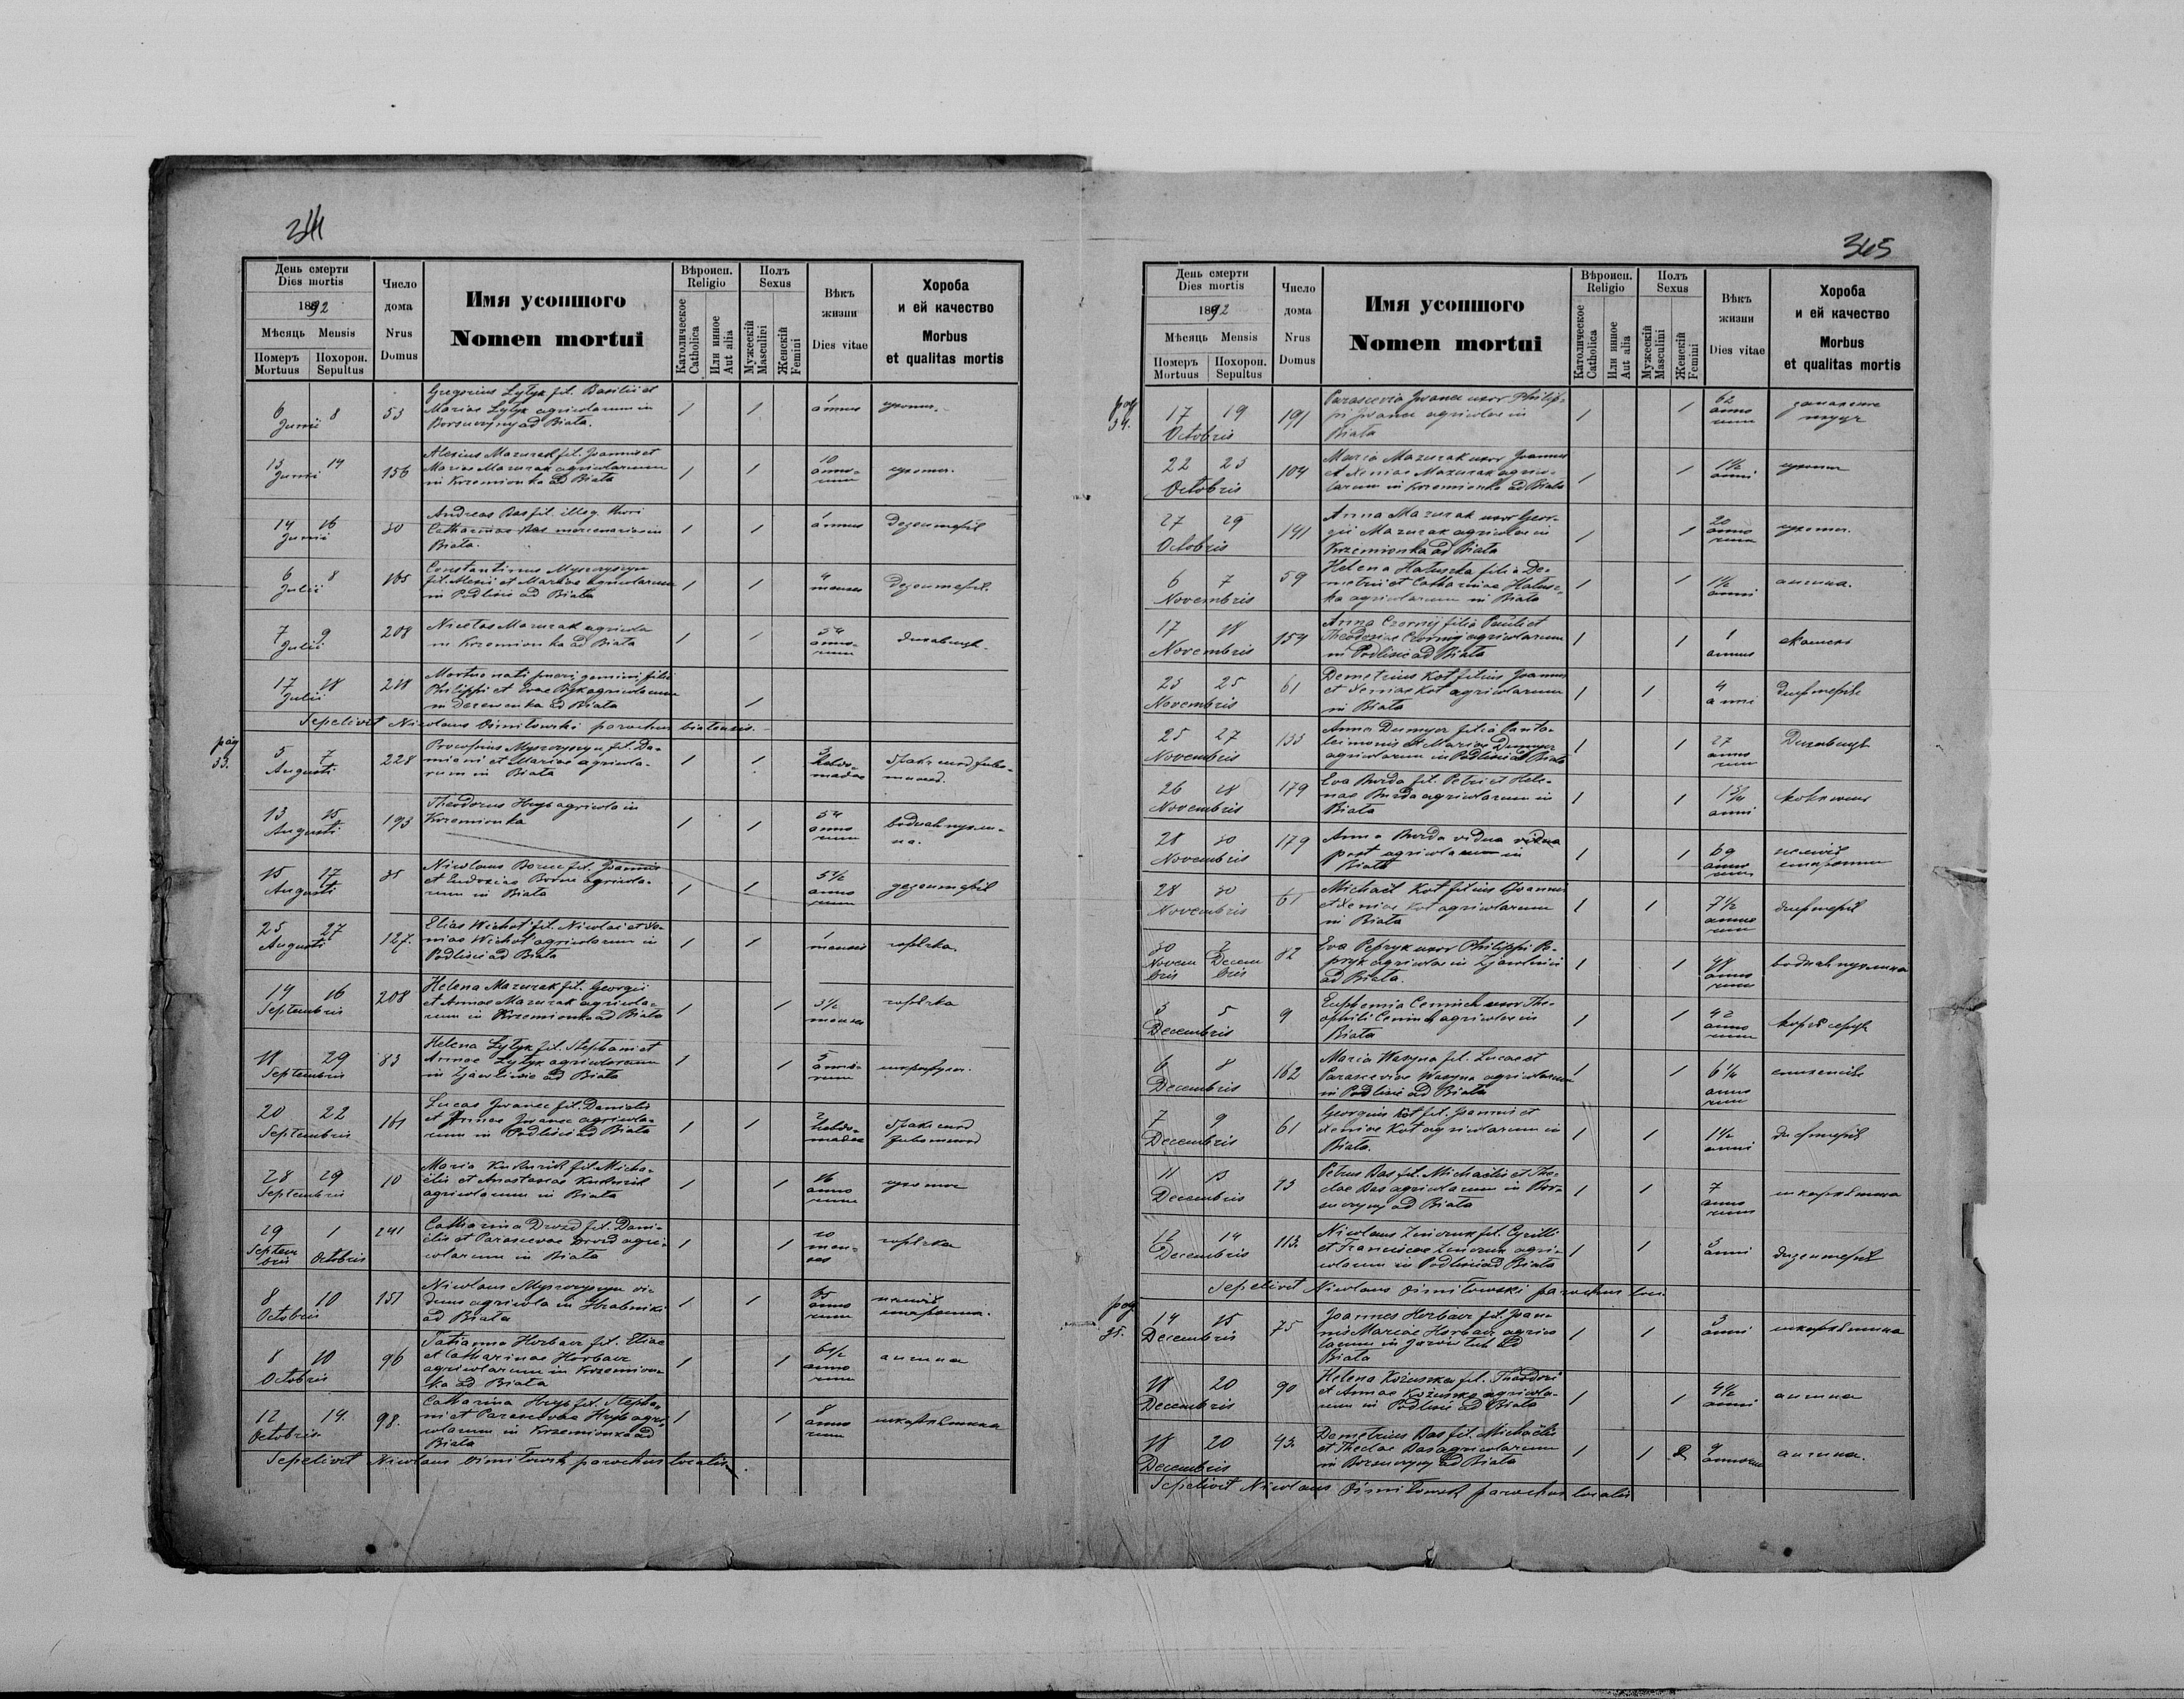 344
День смерти
Dies mortis
1892
Мѣсяць Mensis
Померъ Похорон.
Mortuus Sepultus
Число
дома
Nrus
Domus
Имя усопшого
Nomen mortui
Вѣроисп.
Religio
Католическое
Catholica
Или инное
Aut alia
Полъ
Sexus
Мужескій
Masculini
Женскій
Femini
Вѣкъ
жизни
Dies vitae
Хороба
и ей качество
Morbus
et qualitas mortis
6 8
Junii
53
Gregorius Łytyk fil. Basilii et
Mariae Łytyk agricolarum in
ad Biała.
1 1
1
annus
13 14
Junii
156
Alexius Mazurak fil. Joannis et
Mariae Mazurak agricolarum
in Krzemionka ad Biała
1 1
10
anno-
rum
14 16
Junii
30
Andreas Bas fil. illeg. thori
Catharinae Bas mercenariae in
Biała.
1 1
1
annus
дезинтерія
6 8
Julii
165
Constantinus Myszczyszyn
fil. Alexii et Mariae agricolarum
in Podlisie ad Biała
1 1
4
menses
дезинтерія.
7 9
Julii
208
Nicetas Mazurak agricola
in Krzemionka ad Biała
1 1
54
anno-
rum
17 18
Julii
218
Mortuo nati pueri gemini filii
Philippi et Evae agricolarum
in Derewenka ad Biała
1
Sepelivit Nicolaus Dimitowski parochus białensis.
pag
33.
5 7
Augusti
228
Procopius Myszczyszyn fil. Da-
miani et Mariae agricola-
rum in Biała
1 1
3
hebdo-
madae
13 15
Augusti
193
Theodorus Hryb agricola in
Krzemionka
1 1
54
anno
rum
водная пухли-
на.
15 17
Augusti
31
Nicolaus fil. Joannis
et Eudoxiae agricola-
rum in Biała
1 1
5 1/2
anno
rum
дезинтерія
25 27
Augusti
127.
Elias Wichot fil. Nicolai et Xe-
niae Wichot agricolarum in
Podlisie ad Biała
1 1
1
mensis
горячка.
14 16
Septembris
208
Helena Mazurak fil. Georgii
et Annae Mazurak agricola-
rum in Krzemionka ad Biała
1 1
3 1/2
menses
горячка
18 29
Septembris
83
Helena Łytyk fil. Stephani et
Annae Łytyk agricolarum
in Zjawlinie ad Biała
1 1
5
anno-
rum
20 22
Septembris
161
Lucas Iwanec fil. Danielis
et Annae Iwanec agricola-
rum in Podlisie ad Biała
1 1
2
hebdo-
madae
28 29
Septembris
10
Maria fil. Micha-
elis et Anastasiae
agricolarum in Biała
1 1
16
anno
rum
29 1
Septem
bris Octobris
241
Catharina Drozd fil. Dani-
elis et Parascevae Drozd agri-
colarum in Biała
1 1
10
men-
ses
горячка
8 10
Octobris
151
Nicolaus Myszczyszyn vi-
duus agricola in Hrabniki
ad Biała
1 1
65
anno
rum
8 10
Octobris
96
Tatianna Horbacz fil. Eliae
et Catharinae Horbacz
agricolarum in Krzemion-
ka ad Biała
1 1
6 1/2
anno
rum
ангина
12 14.
Octobris
98.
Catharina Hryb fil. Stepha-
ni et Parascevae Hryb agri-
colarum in Krzemionka ad
Biała
1 1
8
anno
rum
шкарлятина
Sepelivit Nicolaus Dimitowski parochus localis
345
День смерти
Dies mortis
1892
Мѣсяць Mensis
Померъ Похорон.
Mortuus Sepultus
Число
дома
Nrus
Domus
Имя усопшого
Nomen mortui
Вѣроисп.
Religio
Католическое
Catholica
Или инное
Aut alia
Полъ
Sexus
Мужескій
Masculini
Женскій
Femini
Вѣкъ
жизни
Dies vitae
Хороба
и ей качество
Morbus
et qualitas mortis
pag
34.
17 19
Octobris
191
Parascevia Iwanec uxor Philip-
pi Iwanec agricolae in
Biała
1 1
62
anno
rum
запаленіе
22 23
Octobris
104
Maria Mazurak uxor Joannis
et Xeniae Mazurak agrico-
larum in Krzemionka ad Biała
1 1
1 1/2
anni
27 29
Octobris
141
Anna Mazurak uxor Geor-
gii Mazurak agricolae in
Krzemionka ad Biała
1 1
20
anno
rum
6 7
Novembris
59
Helena Hałuszka filia De-
metrii et Catharinae Hałusz-
ka agricolarum in Biała
1 1
1 1/2
anni
ангина.
17 18
Novembris
154
Anna Czornij filia Pauli et
Theodosiae Czornij agricolarum
in Podlisie ad Biała
1 1
1
annus
23 25
Novembris
61
Demetrius Kot filius Joannis
et Xeniae Kot agricolarum
in Biała
1 1
4
anni
дифтерія
25 27
Novembris
133
Anna Demyor filia Panto-
leimonis et Mariae Demyor
agricolarum in Podlisie ad Biała
1 1
27
anno
rum
26 28
Novembris
179
Eva Burda fil. Petri et Hele-
nae Burda agricolarum in
Biała
1 1
anni
28 30
Novembris
179
Anna Burda vidua vidua
post agricolarum in
Biała
1 1
69
anno
rum
28 30
Novembris
61
Michael Kot filius Joannis
et Xeniae Kot agricolarum
in Biała
1 1
7 1/2
anno
rum
дифтерія
30 2
Novem Decem
bris bris
82
Eva Pepryk uxor Philippi Pe-
pryk agricolae in Zjawlinie
ad Biała.
1 1
48
anno
rum
водная пухлина
3 5
Decembris
9
Euphemia Ceminch uxor The-
ophili Ceminch agricolae in
Biała
1 1
42
anno
rum
6 8
Decembris
162
Maria Wasyna fil. Lucae et
Parasceviae Wasyna agricolarum
in Podlisie ad Biała
1 1
6 1/2
anno
rum
7 9
Decembris
61
Georgius Kot fil. Joannis et
Xeniae Kot agricolarum in
Biała.
1 1
1 1/2
anni
дифтерія
11 13
Decembris
73
Petrus Bas fil. Michaelis et The-
clae Bas agricolarum in
ad Biała
1 1
7
anno
rum
шкарлятина
12 14
Decembris
113.
Nicolaus fil. Cyrilli
et Franciscae agri-
colarum in Podlisie ad Biała
1 1
3
anni
дизентерія
Sepelivit Nicolaus Dimitowski parochus loci.
pag
35.
14 15
Decembris
75
Joannes Horbacz fil. Joan-
nis Mariae Horbacz agrico
larum in ad
Biała
1 1
3
anni
шкарлятина
18 20
Decembris
90
Helena Kozuszka fil. Theodori
et Annae Kozuszka agricola-
rum in Podlisie ad Biała
1 1
4 1/2
anni
ангина
18 20
Decembris
43.
Demetrius Bas fil. Michaelis
et Theclae Bas agricolarum
in ad Biała
1 1
9
annorum
ангина.
Sepelivit Nicolaus Dimitowski parochus localis